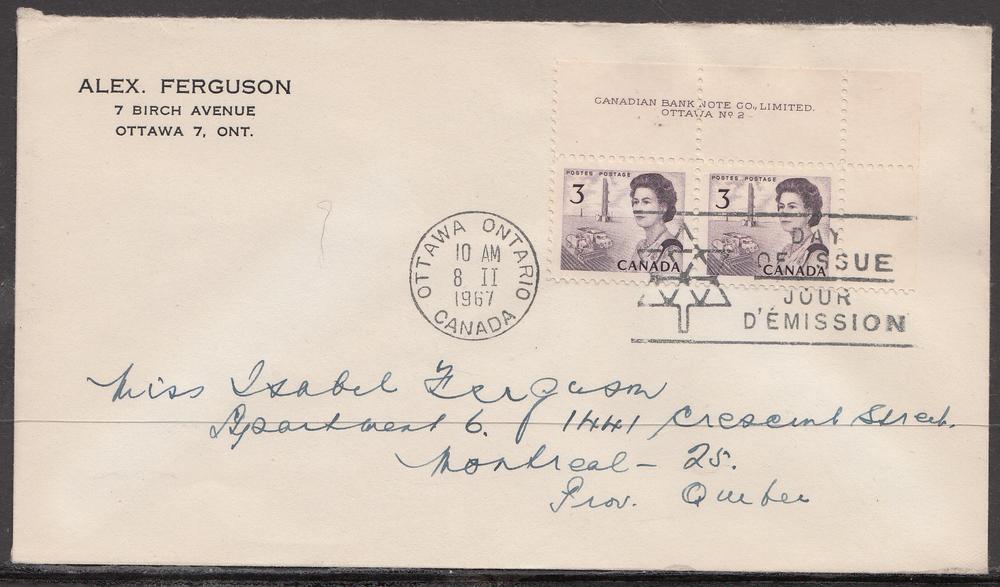 ALEX. FERGUSON
7 BIRCH AVENUE
OTTAWA 7, ONT.
CANADIAN BANK NOTE CO., LIMITED.
OTTAWA Nº 2
POSTES POSTAGE
3
CANADA
POSTES POSTAGE
3
CANADA
OTTAWA ONTARIO
10 AM
8 II
1967
CANADA
DAY
OF ISSUE
JOUR
D'ÉMISSION
Miss Isabel Ferguson
Apartment 6. 1441 Crescent Street.
Montreal - 25.
Prov. Quebec